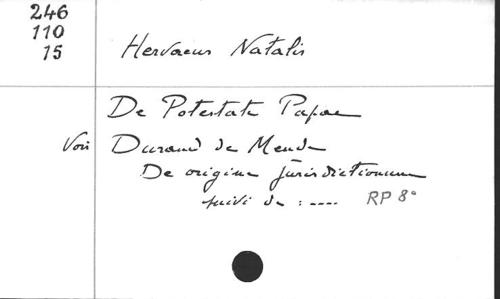 246
110
15
Hervaeus Natalis
De Potestate Papae
Voir Durand de Mende
De origine jurisdictionum
suivi de : ----
RP 8°